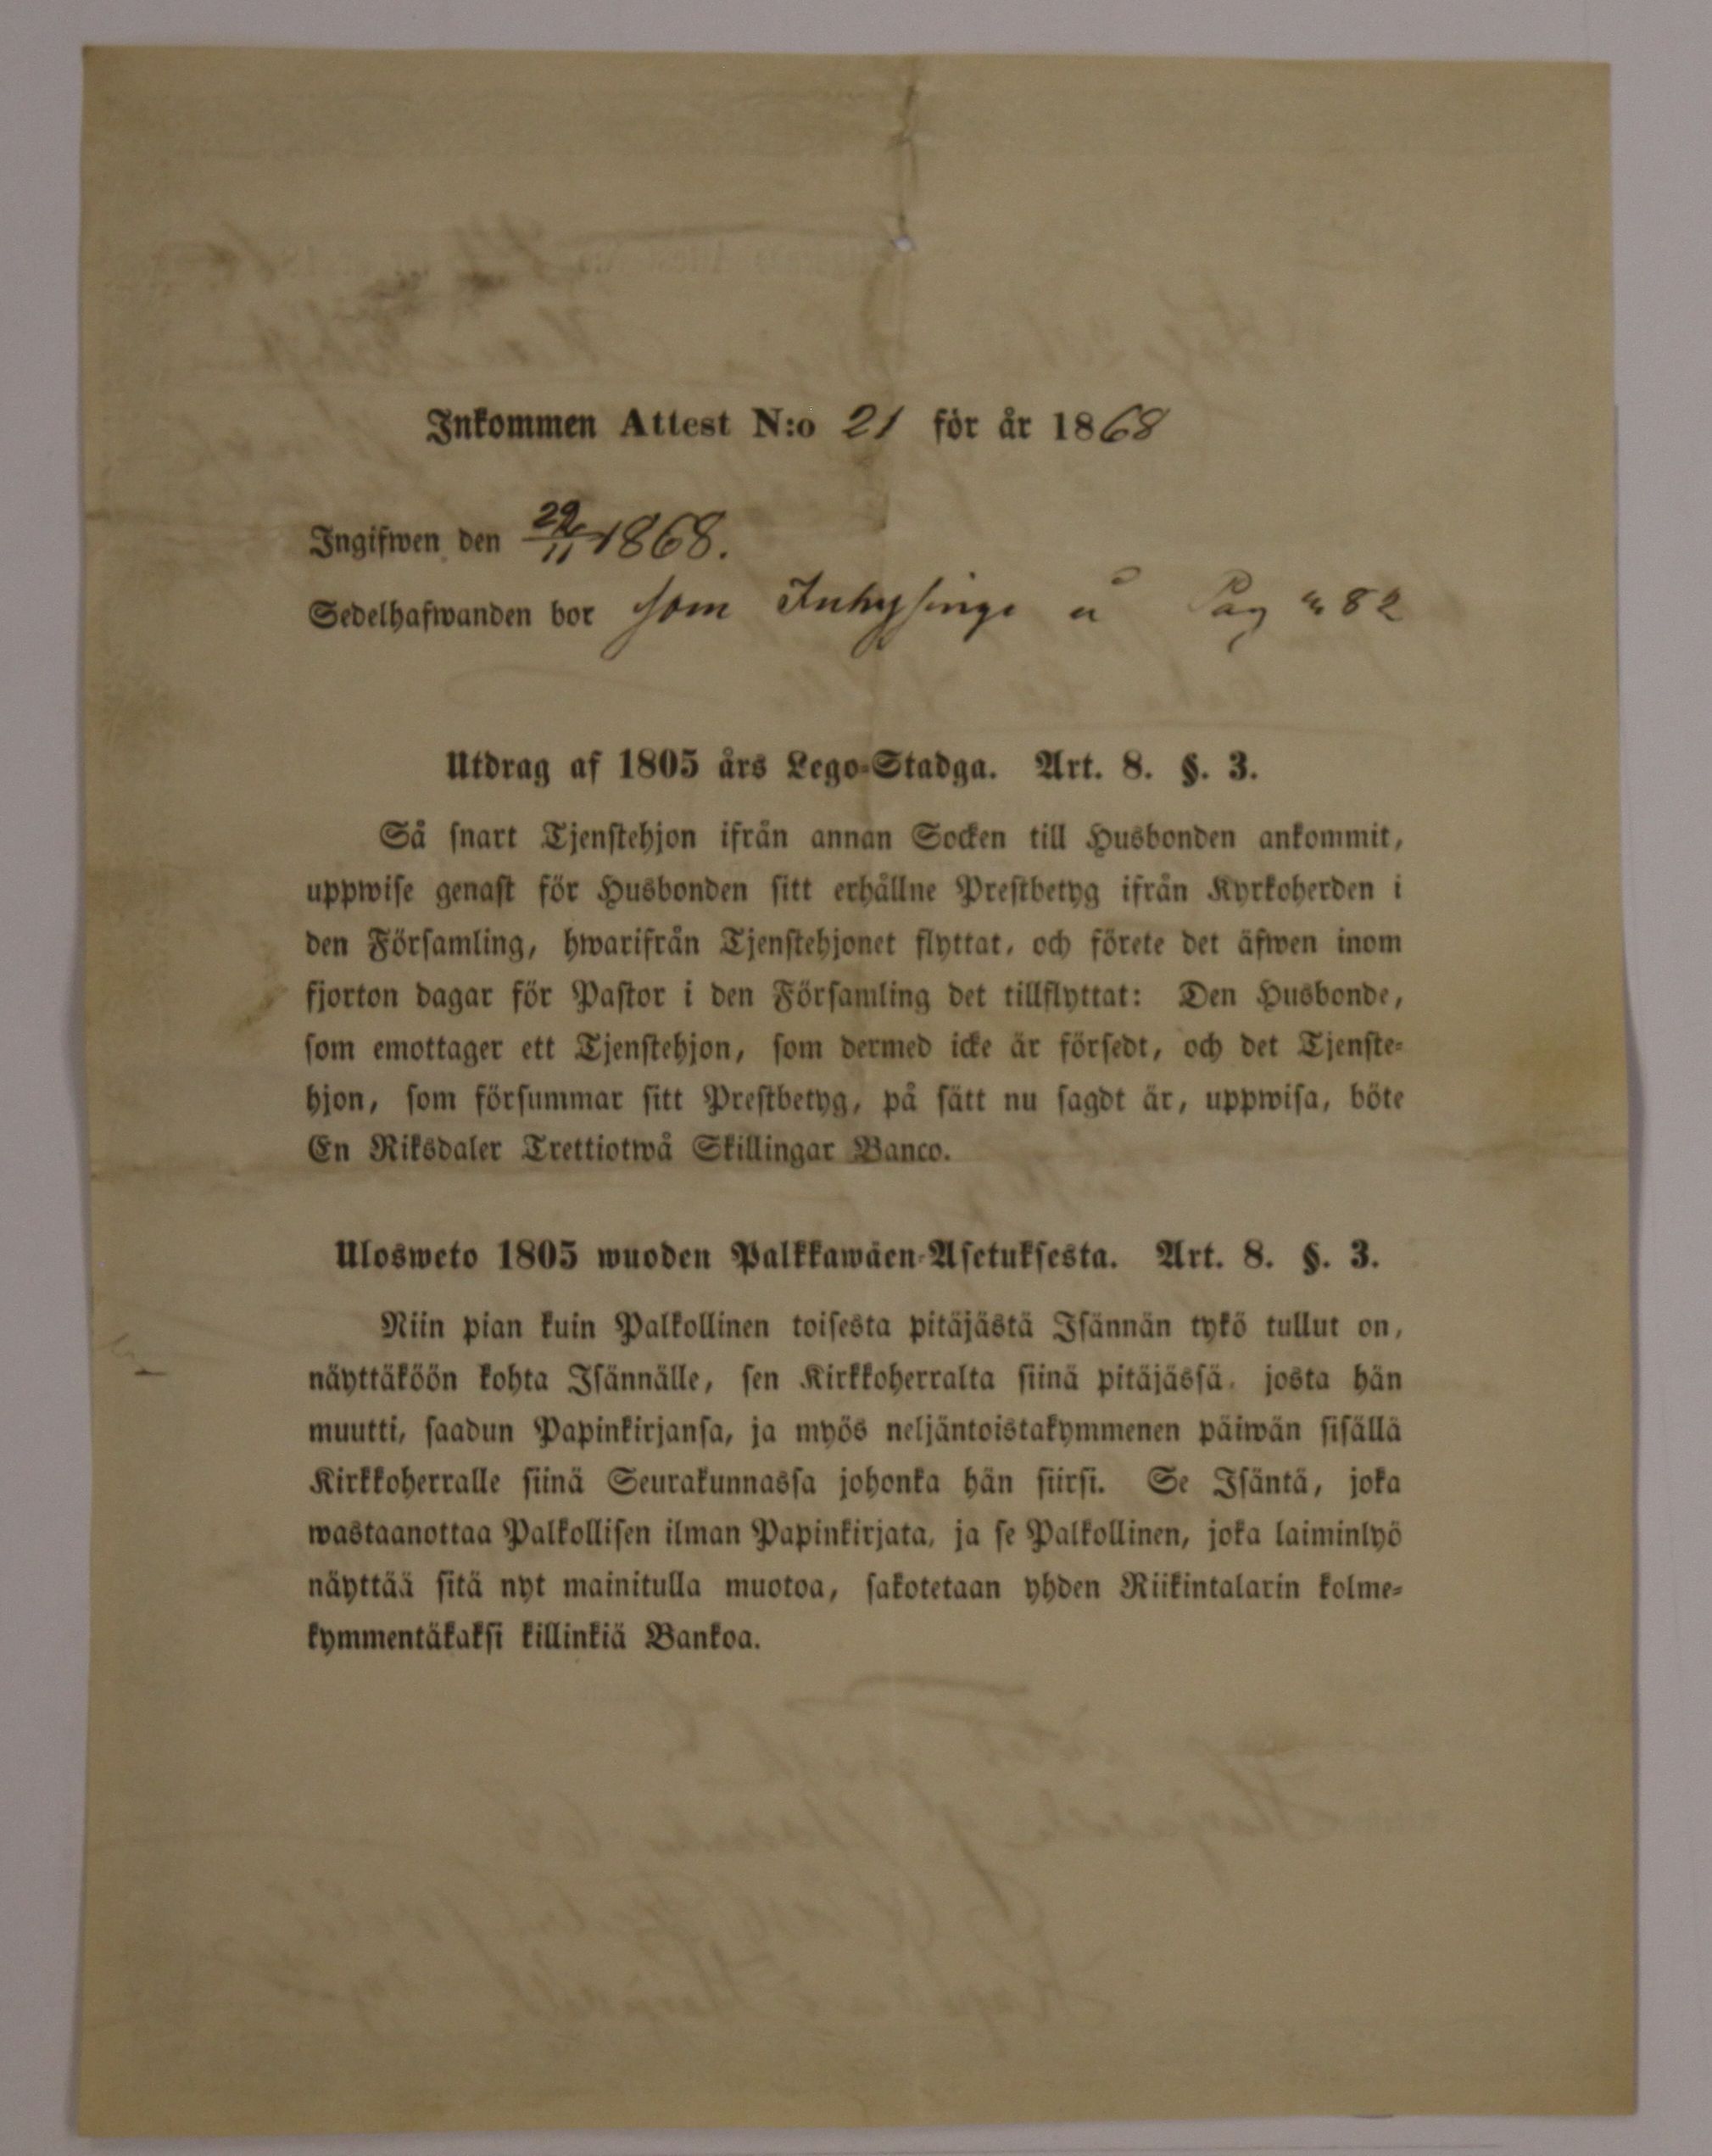 Inkommen Attest N:o 21 för år 1868
Ingifwen den 29/11 1868.
Sedelhafwanden bor som Inhysinge å Pag 82
Utdrag af 1805 års Lego-Stadga. Art. 8. §. 3.
Så snart Tjenstehjon ifrån annan Socken till Husbonden ankommit,
uppwise genast för Husbonden sitt erhållne Prestbetyg ifrån Kyrkoherden i
den Församling, hwarifrån Tjenstehjonet flyttat, och förete det äfwen inom
fjorton dagar för Pastor i den Församling det tillflyttat: Den Husbonde,
som emottager ett Tjenstehjon, som dermed icke är försedt, och det Tjenste-
hjon, som försummar sitt Prestbetyg, på sätt nu sagdt är, uppwisa, böte
En Riksdaler Trettiotwå Skillingar Banco.
Ulosweto 1805 wuoden Palkkawäen-Asetuksesta. Art. 8. §. 3.
Niin pian kuin Palkollinen toisesta pitäjästä Isännän tykö tullut on,
näyttäköön kohta Isännälle, sen Kirkkoherralta siinä pitäjässä, josta hän
muutti, saadun Papinkirjansa, ja myös neljäntoistakymmenen päiwän sisällä
Kirkkoherralle siinä Seurakunnassa johonka hän siirsi. Se Isäntä, joka
wastaanottaa Palkollisen ilman Papinkirjata, ja se Palkollinen, joka laiminlyö
näyttää sitä nyt mainitulla muotoa, sakotetaan yhden Riikintalarin kolme-
kymmentäkaksi killinkiä Bankoa.